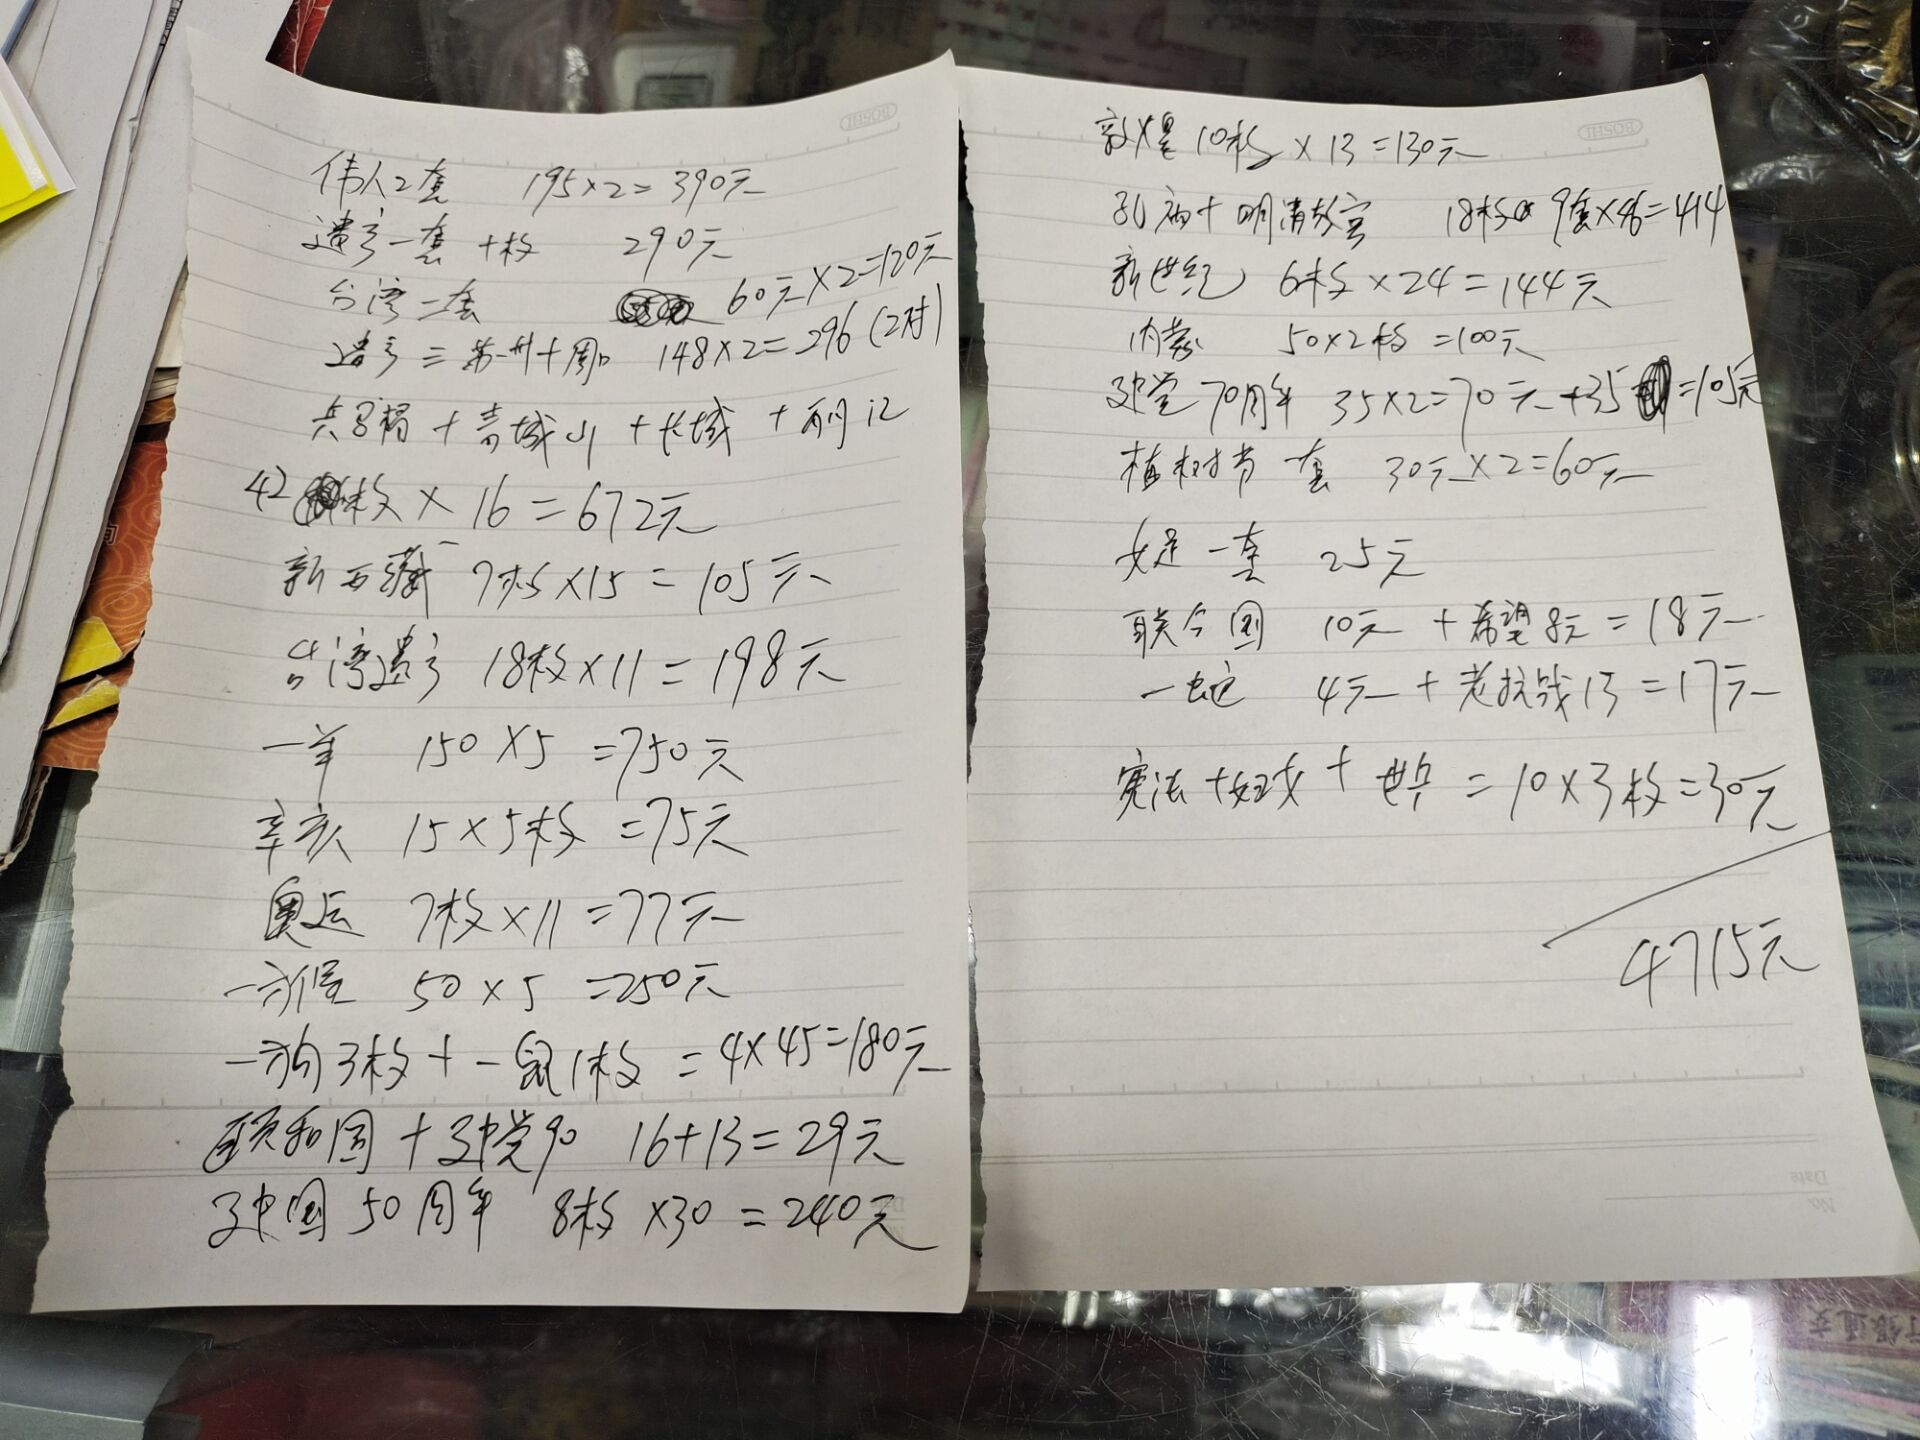 伟人2套 195×2=390元
遗产一套十枚 290元
台湾二套 60元×2=120元
遗产三 苏州+周口 148×2=296(2对)
兵马俑+青城山+长城+丽江
42 枚×16=672元
新西藏 7枚×15=105元
台湾遗产 18枚×11=198元
一羊 150×5=750元
辛亥 15×5枚=75元
奥运 7枚×11=77元
一猴 50×5=250元
一狗3枚+一鼠1枚=4×45=180元
颐和园+建党90 16+13=29元
建国50周年 8枚×30=240元
BOSHI
敦煌10枚×13=130元
孔庙+明清故宫 18枚 9套×46=414
新世纪 6枚×24=144元
内蒙 50×2枚=100元
建党70周年 35×2=70元+35=105元
植树节一套 30元×2=60元
女足一套 25元
联合国 10元+希望8元=18元
一蛇 4元+老抗战13=17元
宪法+妇女+世乒=10×3枚=30元
4715元
BOSHI
Date
No.